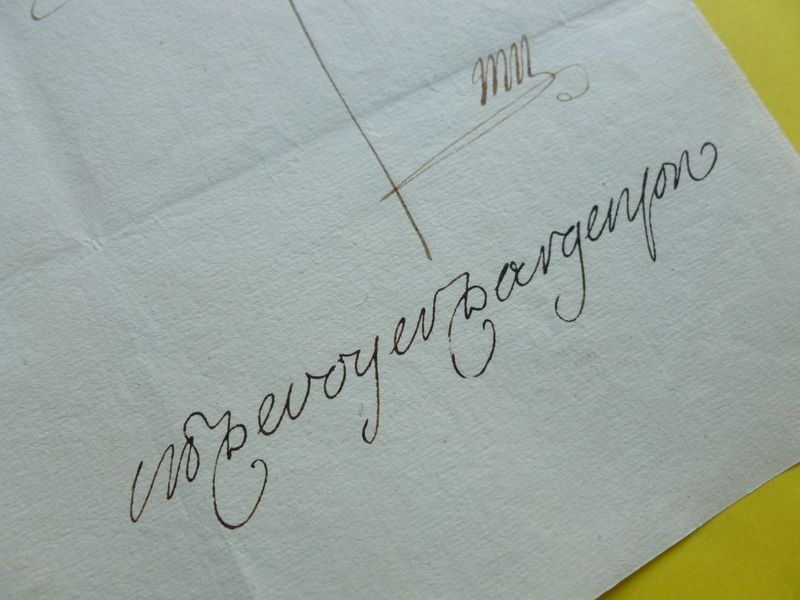 MR devoyer dargenson